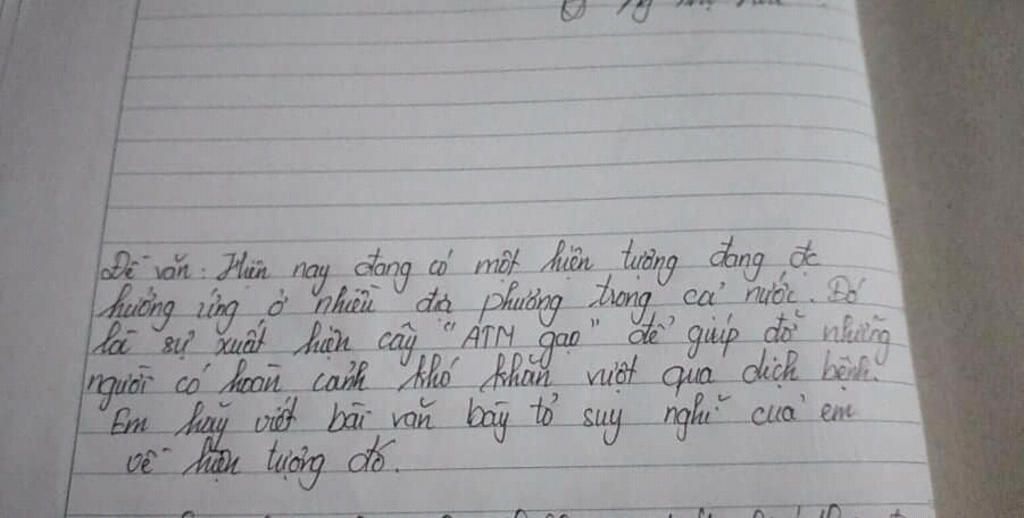 Đề văn: Hiện nay đang có một hiện tượng đang đc
hưởng ứng ở nhiều địa phương trong cả nước. Đó
là sự xuất hiện cây "ATM gạo" để giúp đỡ những
người có hoàn cảnh khó khăn vượt qua dịch bệnh.
Em hãy viết bài văn bày tỏ suy nghĩ của em
về hiện tượng đó.